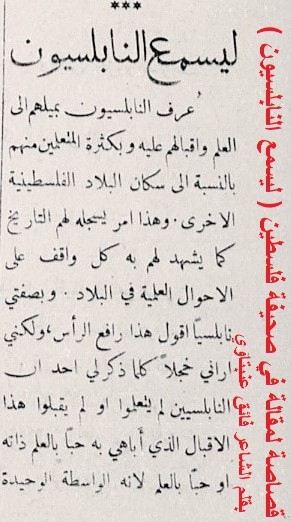 ***
ليسمع النابلسيون
عُرف النابلسيون بميلهم الى
العلم واقبالهم عليه وبكثرة المتعلمين منهم
بالنسبة الى سكان البلاد الفلسطينية
الاخرى . وهذا امر يسجله لهم التاريخ
كما يشهد لهم به كل واقف على
الاحوال العلمية في البلاد . وبصفتي
نابلسياً اقول هذا رافع الرأس ، ولكنني
اراني خجلاً كلما ذكر لي احد ان
النابلسيين لم يتعلموا او لم يقبلوا هذا
الاقبال الذي أباهي به حباً بالعلم ذاته
او حباً بالعلم لانه الواسطة الوحيدة
قصاصة لمقالة في صحيفة فلسطين ( ليسمع النابلسيون )
بقلم الشاعر فائق عنبتاوي